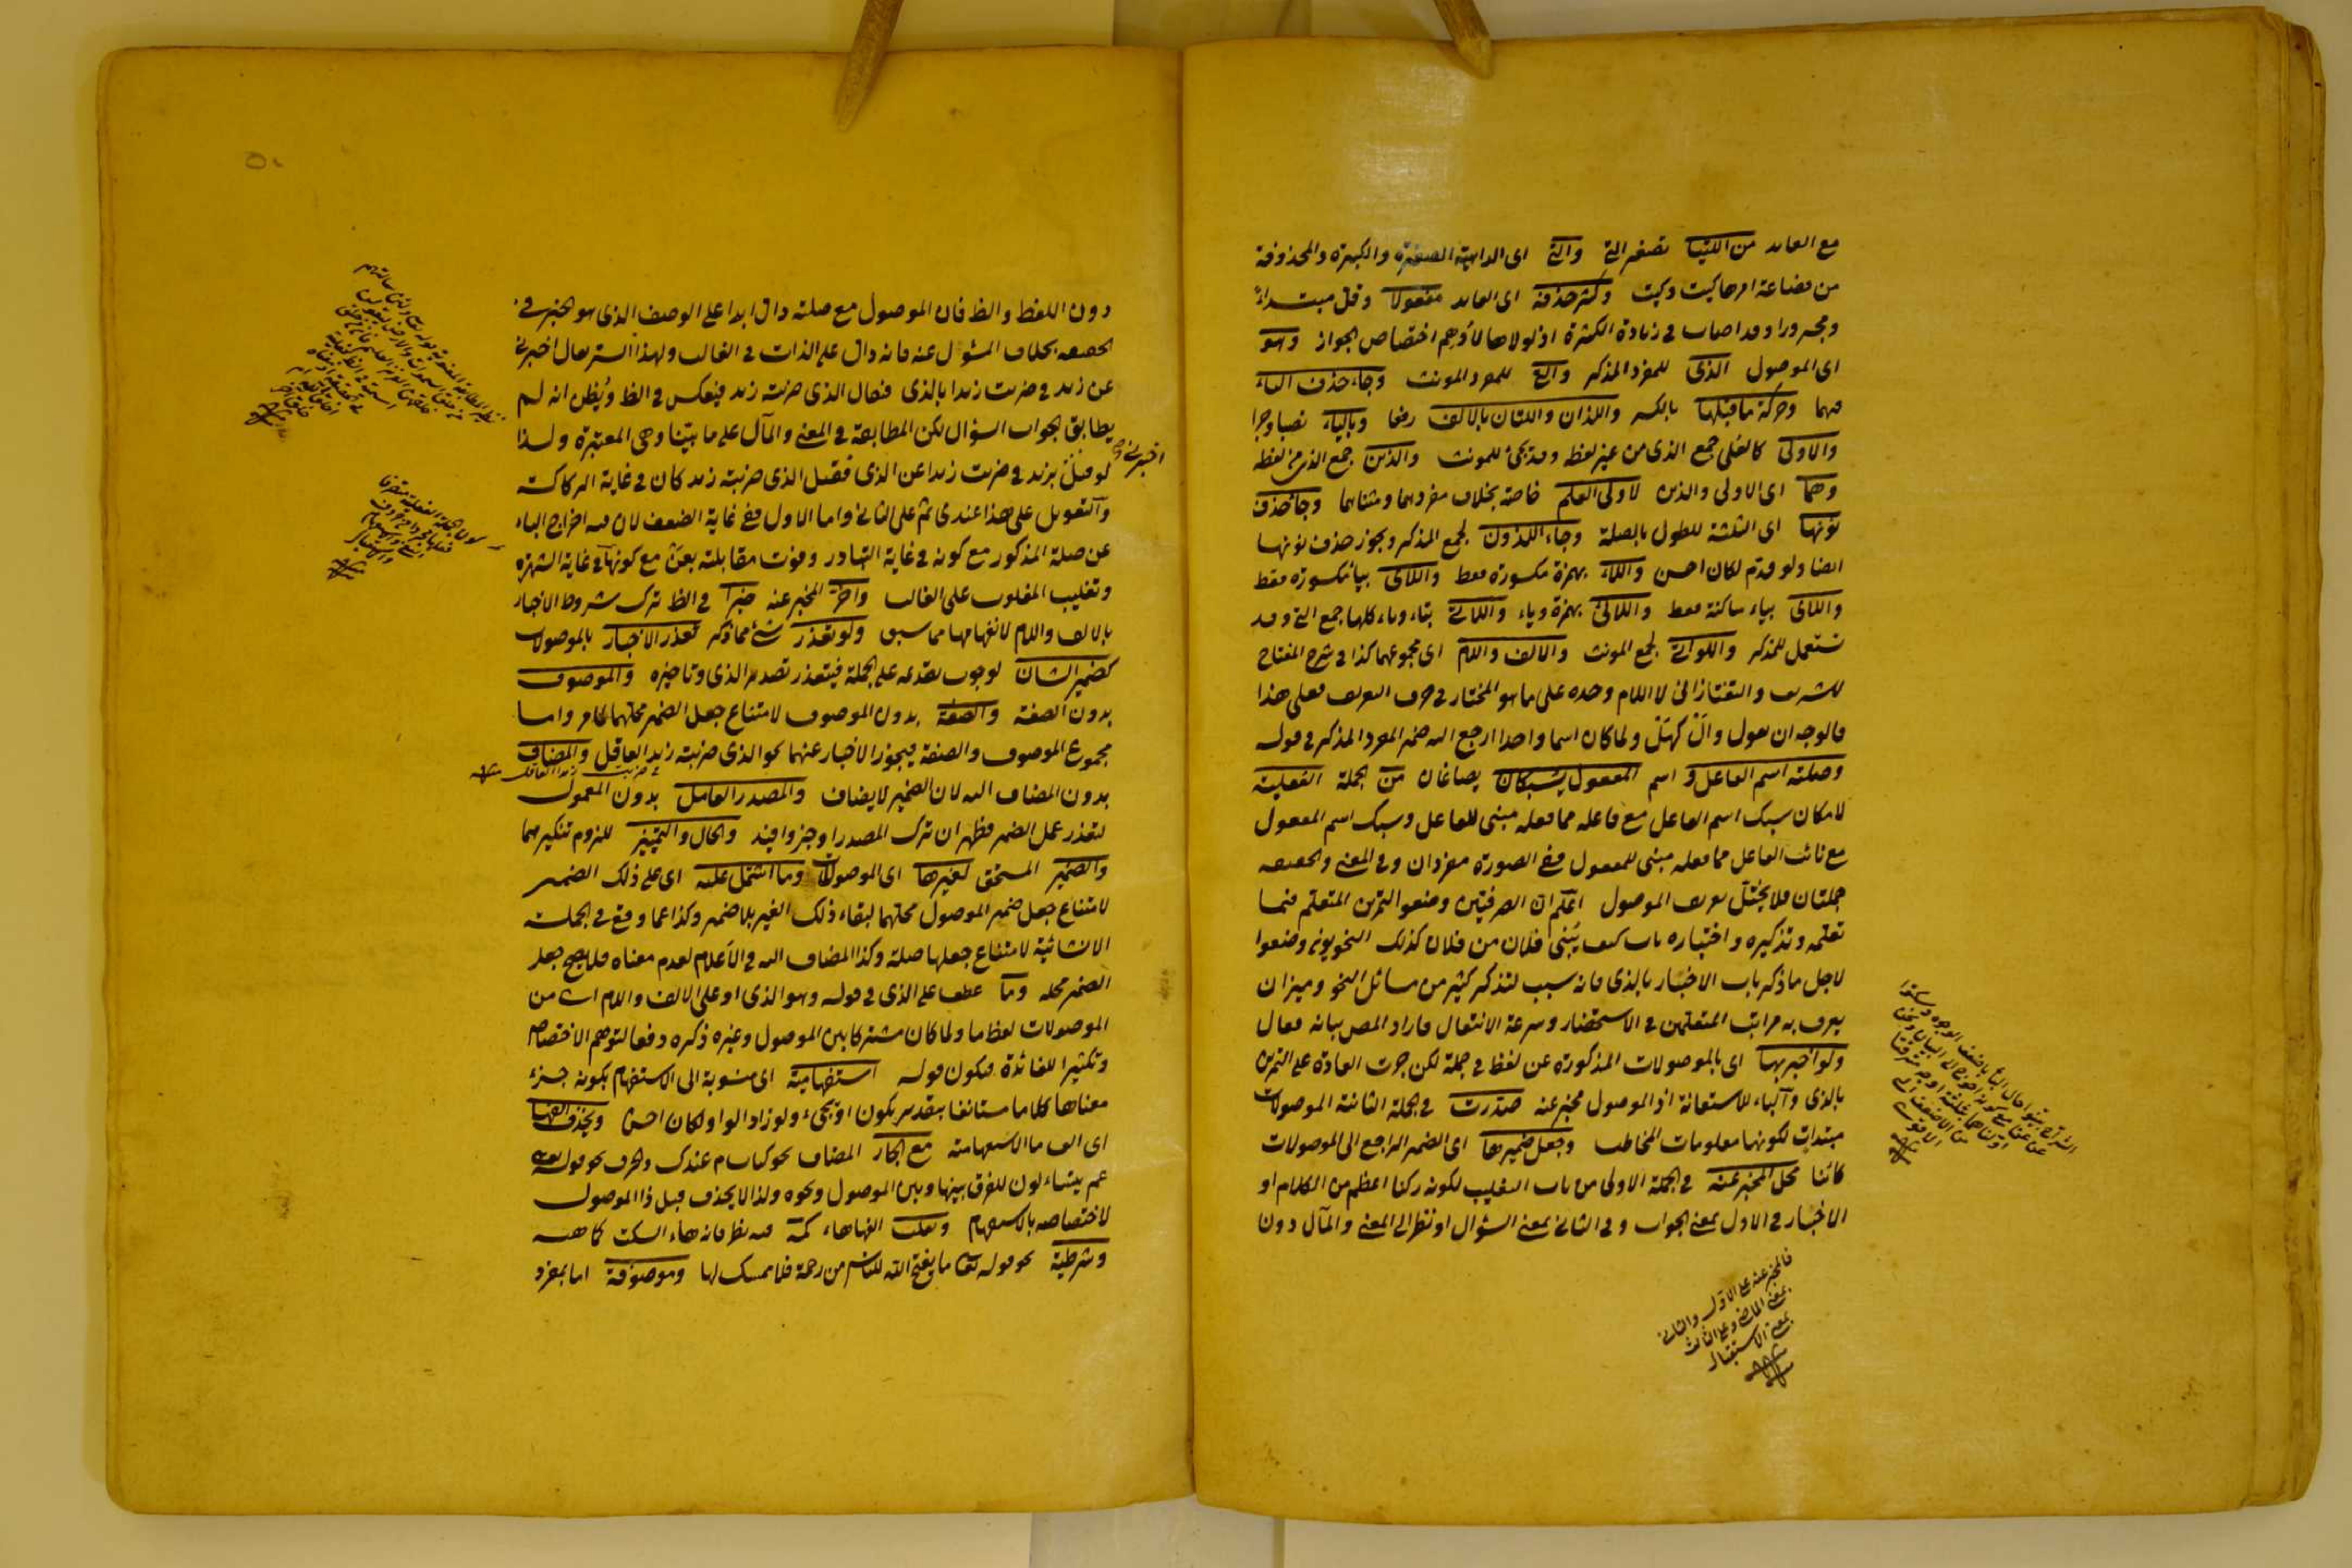 مع العايد من اللتيا تصغير التي والتي اى الداهية الصغيرة والكبيرة والمحذوفة
من فضاعة امرها كيت وكيت وكثر حذفه اى العايد مفعولا وقل مبتداء
ومجرورا وقد اصاب فى زيادة الكثرة اذ لولاها لأوهم اختصاص الجواز وهو
اى الموصول الذى للمفرد المذكر والتى للمفرد المونث وجاء حذف الياء
فيهما وحركة ما قبلها بالكسر واللذان واللتان بالالف رفعا وبالياء نصبا وجرا
والاولى كالعلى جمع الذى من غير لفظه وقد يجئ للمونث والذين جمع الذى من لفظه
وهما اى الاولى والذين لاولى العلم خاصة بخلاف مفردهما ومثناهما وجاء حذف
نونها اى الثلثة للطول بالصلة وجاء اللذون لجمع المذكر ويجوز حذف نونها
ايضا ولو قدم لكان احسن واللاء بهمزة مكسورة فقط واللاى بياء مكسورة فقط
واللاى بياء ساكنة فقط واللائى بهمزة وياء واللاتى بتاء وياء كلها جمع التى وقد
تستعمل للمذكر واللواتى لجمع المونث والالف واللام اى مجموعهما كذا فى شرح المفتاح
للشريف والتفتازانى لا اللام وحده على ما هو المختار فى حرف التعريف فعلى هذا
فالوجه ان يقول وال كهل ولما كان اسما واحدا ارجع اليه ضمير المفرد المذكر فى قوله
وصلته اسم الفاعل و اسم المفعول يسبكان يصاغان من الجملة الفعلية
لامكان سبك اسم الفاعل مع فاعله مما فعله مبنى للفاعل وسبك اسم المفعول
مع نائب الفاعل مما فعله مبنى للمفعول ففى الصورة مفردان وفى المعنى والحقيقة
جملتان فلا يختل تعريف الموصول اعلم ان الصرفيين وضعوا لتمرين المتعلم فيما
تعلمه وتذكيره واختباره باب كيف يبنى فلان من فلان كذلك النحويون وضعوا
لاجل ما ذكر باب الاخبار بالذى فانه سبب لتذكر كثير من مسائل النحو وميزان
يعرف به مراتب المتعلمين فى الاستحضار وسرعة الانتقال فاراد المص بيانه فقال
ولو اخبر بها اى بالموصولات المذكورة عن لفظ فى جملة لكن جرت العادة على التمرين
بالذى والباء للاستعانة اذ الموصول مخبر عنه صدرت فى الجملة الثانية الموصولات
مبتدات لكونها معلومات المخاطب وجعل ضميرها اى الضمير الراجع الى الموصولات
كائنا محل المخبر عنه فى الجملة الاولى من باب التغليب لكونه ركنا اعظم من الكلام او
الاخبار فى الاول بمعنى الجواب وفى الثانى بمعنى السؤال او نظر الى المعنى والمآل دون
فالمخبر عنه على الاول والثانى
بمعنى الماضى وعلى الثالث
بمعنى الاستقبال
دون اللفظ والظ فان الموصول مع صلته دال ابدا على الوصف الذى هو الخبر فى
الحقيقة بخلاف المسئول عنه فانه دال على الذات فى الغالب ولهذا اشتر يقال اخبرنى
عن زيد فى ضربت زيدا بالذى فيقال الذى ضربته زيد فينعكس فى الظ ويُظن انه لم
يطابق الجواب السؤال لكن المطابقة فى المعنى والمآل على ما بيّنا وهى المعتبرة ولذا
اخبرنى صح
لو قيل بزيد فى ضربت زيدا عن الذى فقيل الذى ضربته زيد كان فى غاية الركاكة
والتعويل على هذا عندى ثم على الثانى واما الاول ففى غاية الضعف لان فيه اخراج الباء
عن صلة المذكور مع كونه فى غاية التبادر وفوت مقابلته بعن مع كونها فى غاية الشهرة
وتغليب المغلوب على الغالب واخر المخبر عنه خبرا فى الظ ترك شروط الاخبار
بالالف واللام لانفهامها مما سبق ولو تعذر شئ مما ذكر تعذر الاخبار بالموصولات
كضمير الشان لوجوب تقدمه على الجملة فيتعذر تصدير الذى وتاخيره والموصوف
بدون الصفة والصفة بدون الموصوف لامتناع جعل الضمير محلهما لما مر واما
مجموع الموصوف والصفة فيجوز الاخبار عنهما نحو الذى ضربته زيد العاقل والمضاف
فى ضربت زيدا العاقل منه
بدون المضاف اليه لان الضمير لا يضاف والمصدر العامل بدون المعمول
لتعذر عمل الضمير فظهر ان ترك المصدر اوجز وافيد والحال والتمييز للزوم تنكيرهما
والضمير المستحق لغيرها اى الموصولات وما اشتمل عليه اى على ذلك الضمير
لامتناع جعل ضمير الموصول محلهما لبقاء ذلك الغير بلا ضمير وكذا عما وقع فى الجملة
الانشائية لامتناع جعلها صلة وكذا المضاف اليه فى الأعلام لعدم معناه فلا يصح جعل
الضمير محله وما عطف على الذى فى قوله وهو الذى او على الالف واللام اى من
الموصولات لفظ ما ولما كان مشتركا بين الموصول وغيره ذكره دفعا لتوهم الاختصاص
وتكثيرا للفائدة فيكون قوله استفهامية اى منسوبة الى الاستفهام بكونه جزء
معناها كلاما مستانفا بتقدير يكون او يجئ ولو زاد الواو لكان احسن ويحذف الفها
اى الف ما الاستفهامية مع الجار المضاف نحو كتاب م عندك والحرف نحو قوله تعالى
عم يتساءلون للفرق بينها وبين الموصول ونحوه ولذا لا يحذف قبل ذا الموصول
لاختصاصه بالاستفهام وتقلب الفها هاء كمه فيه نظر فانه هاء السكت كما هيه
وشرطية نحو قوله تعا ما يفتح الله للناس من رحمة فلا ممسك لها وموصوفة اما بمفرد